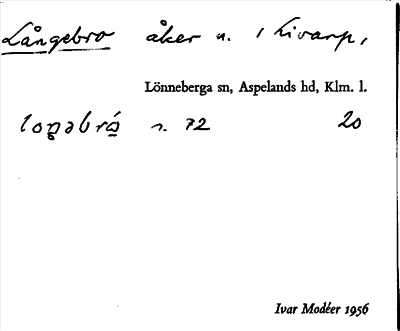 Långebro åker n. i Livarp,
Lönneberga sn, Aspelands hd, Klm. l.
loŋəbrå n. 72 20
Ivar Modéer 1956